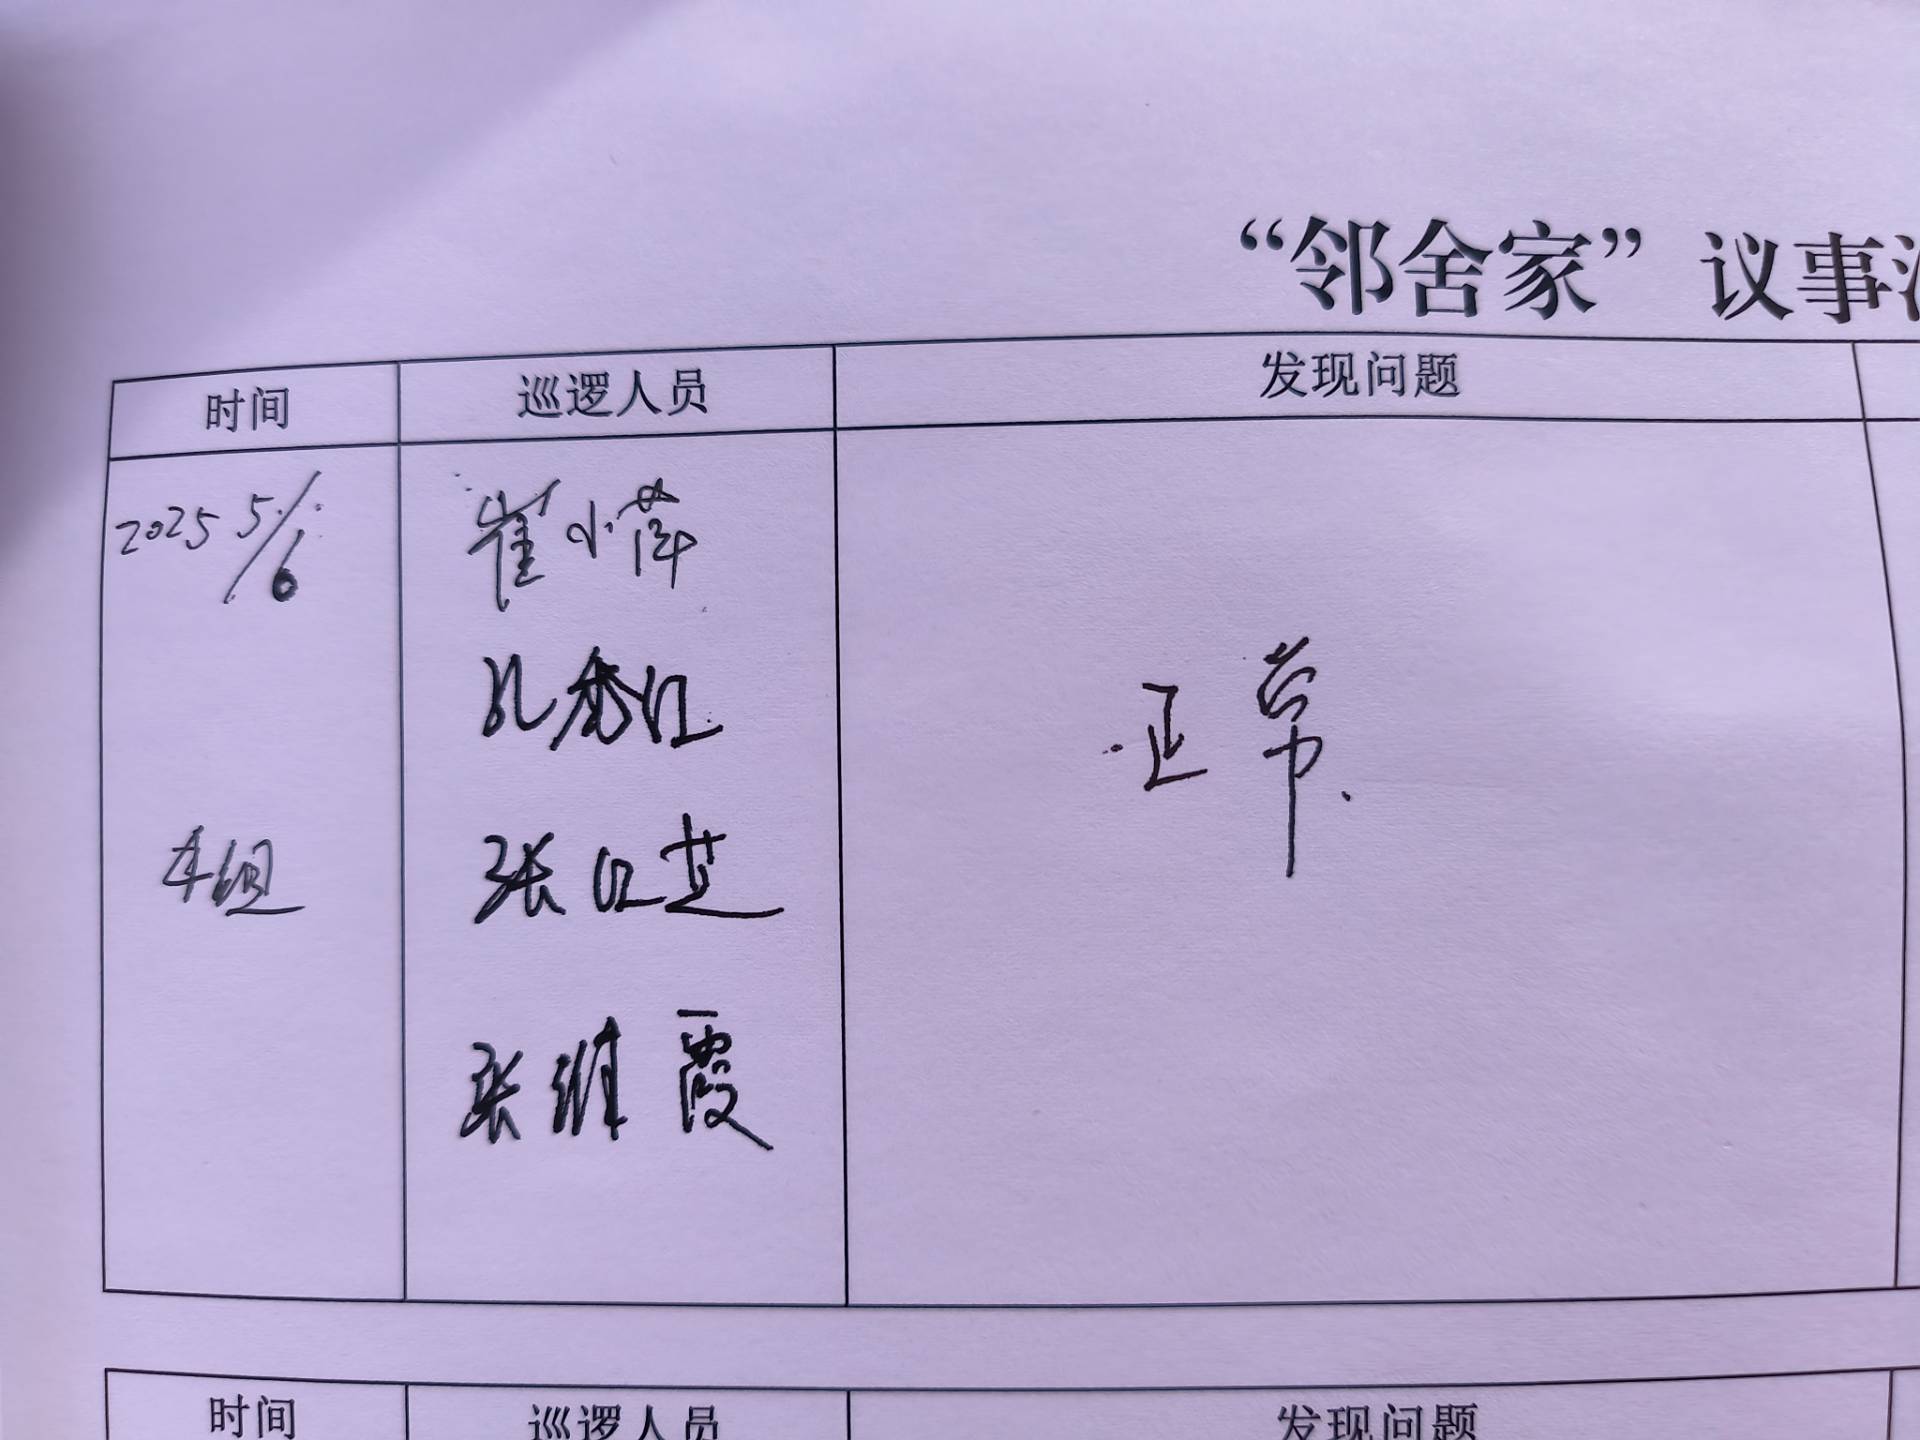 “邻舍家”议事
时间 巡逻人员 发现问题
2025 5/6 崔小萍
孔秀红
正常.
张红芝
张维霞
时间 巡逻人员 发现问题